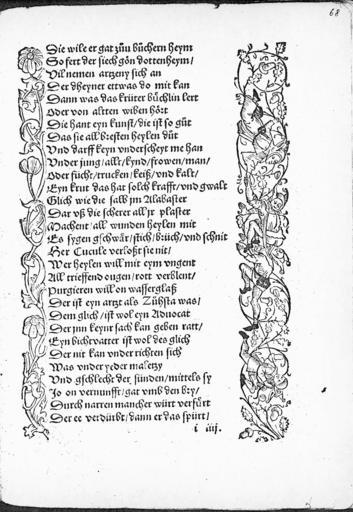 68
Die wile er gat zuͦ buͤchern heym
So fert der siech gön dottenheym/
Vil nemen artzeny sich an
Der dheyner ettwas do mit kan
Dann was das krüter buͤchlin lert
Oder von altten wiben hört
Die hant eyn kunst/die ist so guͦt
Das sie all bresten heylen duͦt
Vnd darff keyn vnderscheyt me han
Vnder jung/allt/kynd/frowen/man/
Oder fücht/trucken/heiß/vnd kalt/
Eyn krut das hat solch krafft/vnd gwalt
Glich wie die salb jm Alabaster
Dar vß die scherer all jr plaster
Machent/all wunden heylen mit
Es sygen gschwär/stich/brüch/vnd schnit
Her Cucule verloßt sie nit/
Wer heylen will mit eym vngent
All trieffend ougen/rott verblent/
Purgieren will on wasserglaß
Der ist eyn artzt als Zuͦhsta was/
Dem glich/ist wol eyn Aduocat
Der jnn keynr sach kan geben ratt/
Eyn bichtvatter ist wol des glich
Der nit kan vnderrichten sich
Was vnder yeder maletzy
Vnd gschlecht der sünden/mittels sy
Jo on vernunfft/gat vmb den bry/
Durch narren mancher würt verfuͤrt
Der ee verdürbt/dann er das spürt/
i iiij.